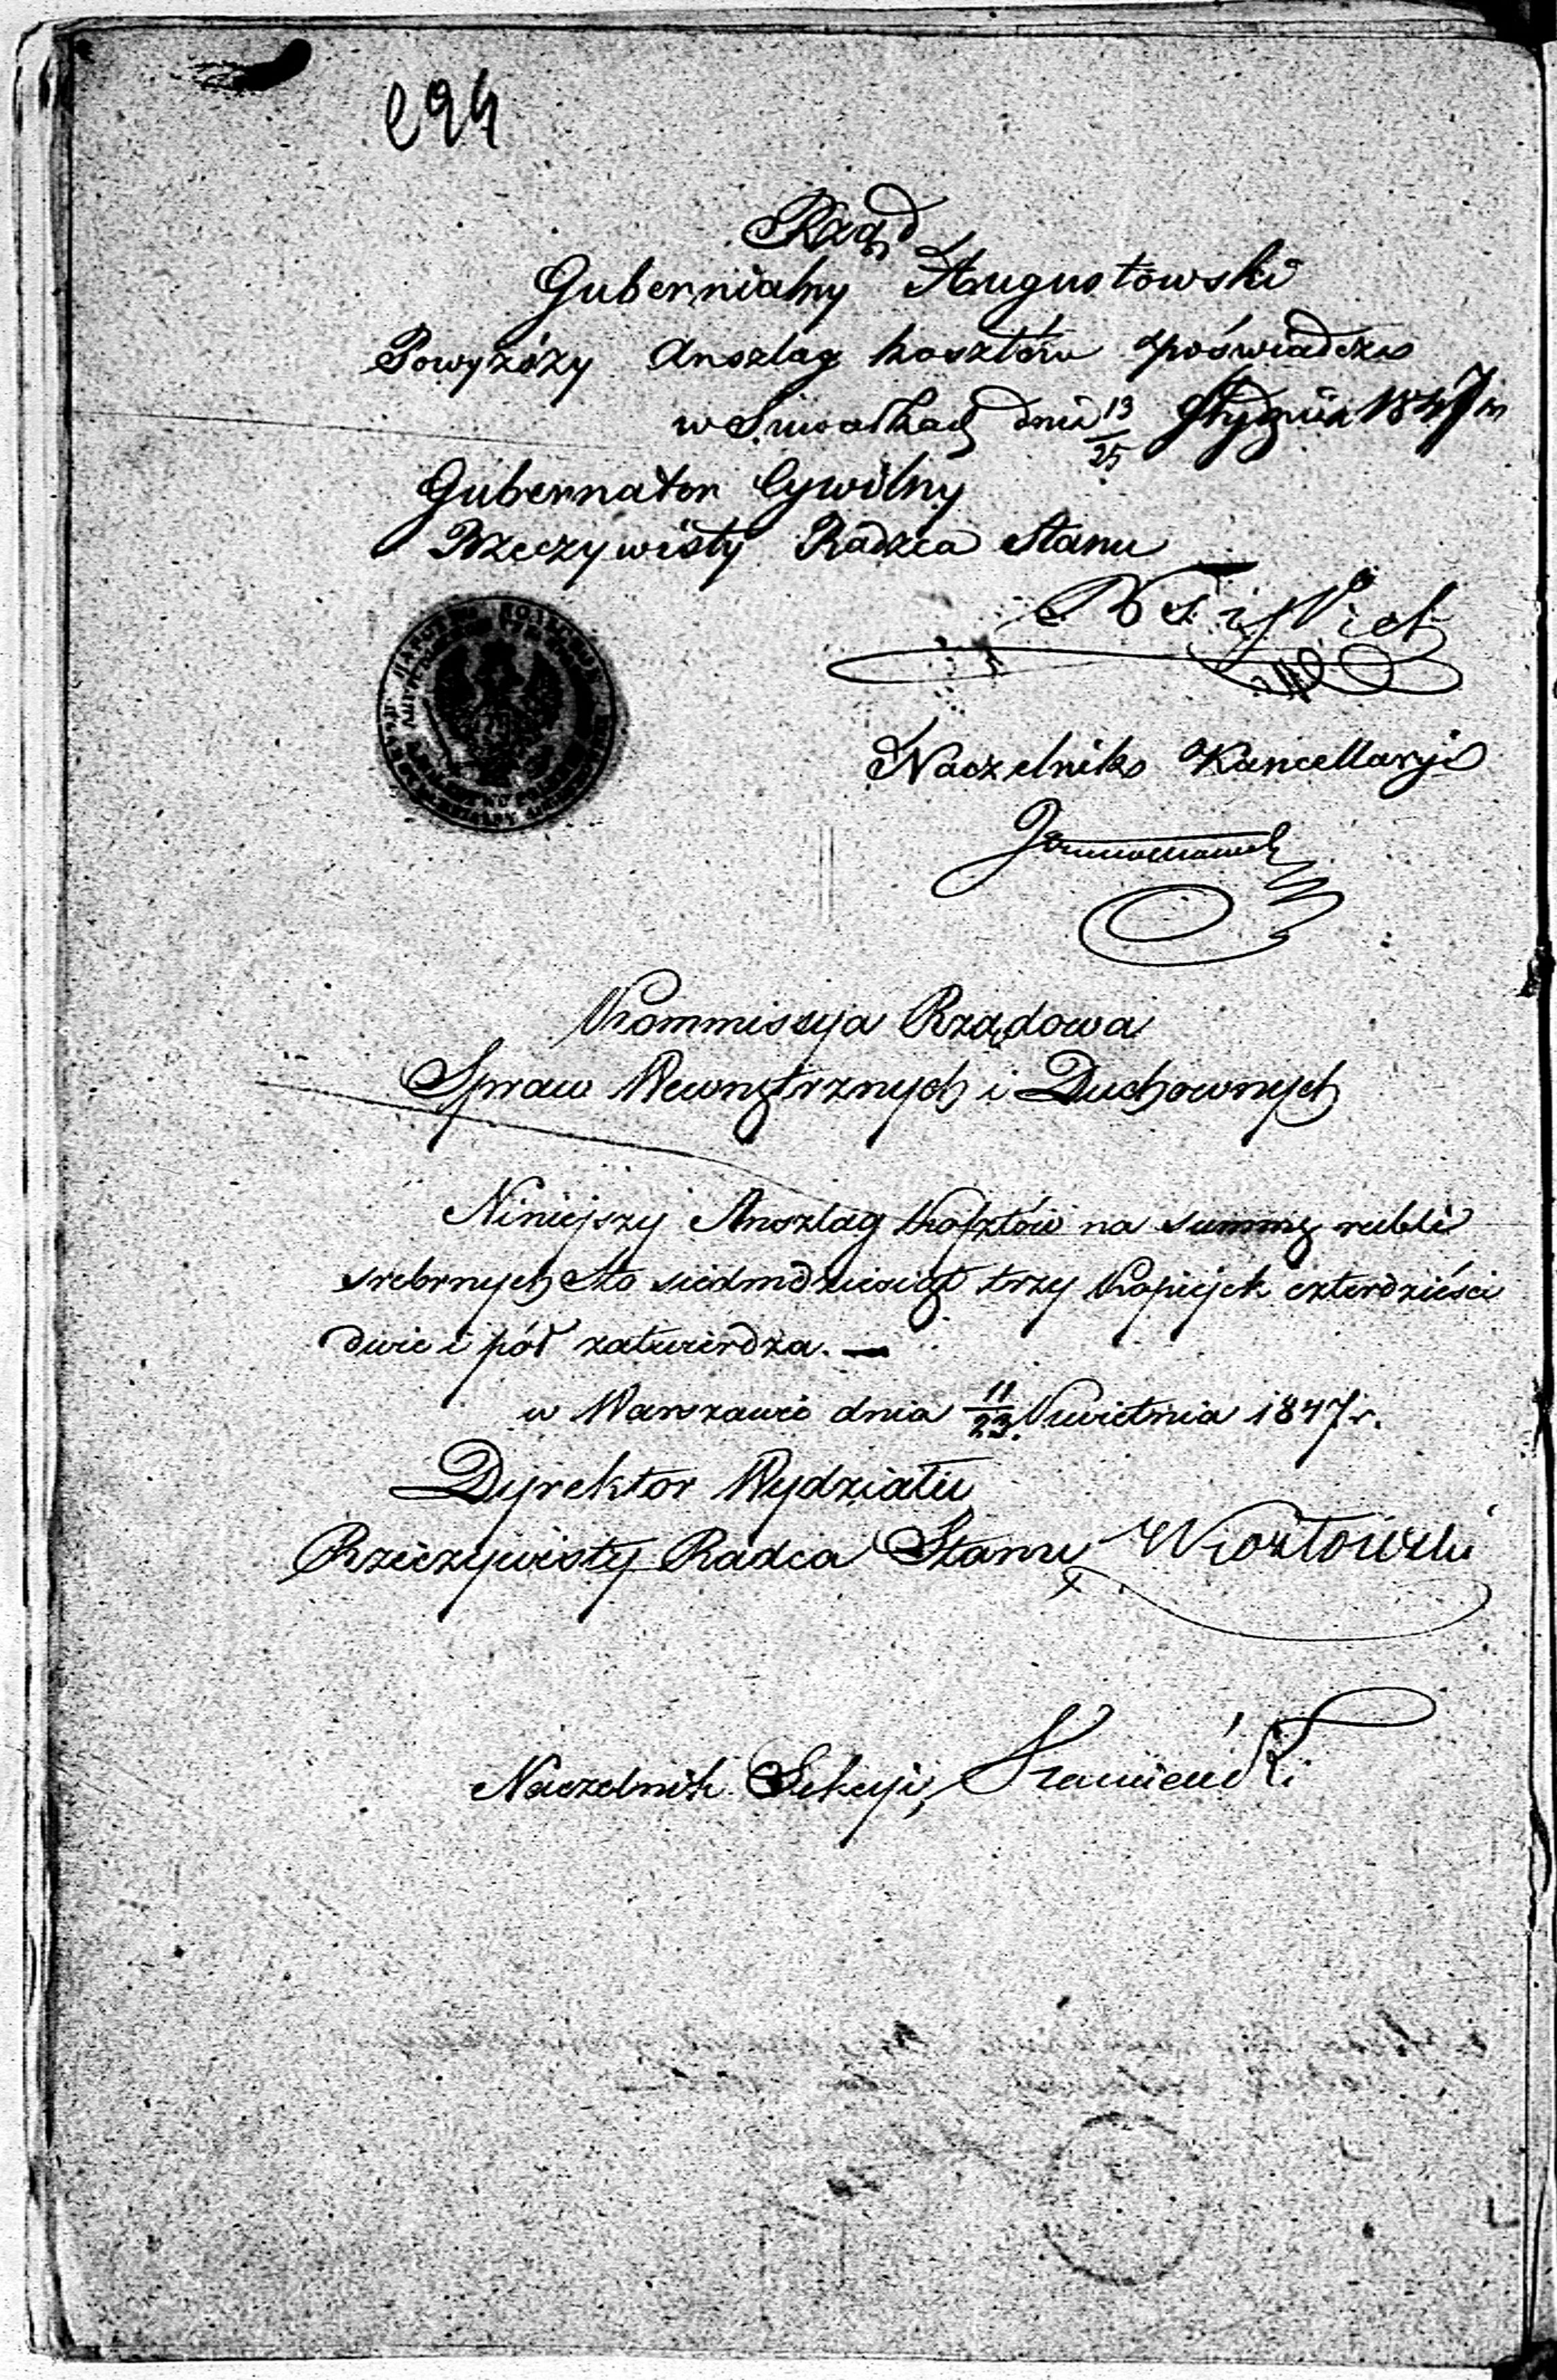 294
Rząd
Gubernialny Augustowski
Powyższy Anszlag kosztów poświadcza
w Suwałkach dnia 13/25 Stycznia 1847 r
Gubernator Cywilny
Rzeczywisty Radzca Stanu
Naczelnik Kancellaryi
Kommissya Rządowa
Spraw Wewnętrznych i Duchownych
Niniejszy Anszlag kosztów na summę rubli
srebrnych Sto siedmdziesiąt trzy kopiejek czterdzieści
dwie i pół zatwierdza. —
w Warszawie dnia 11/23. Kwietnia 1847 r.
Dyrektor Wydziału
Rzeczywisty Radca Stanu
Naczelnik Sekcyi,